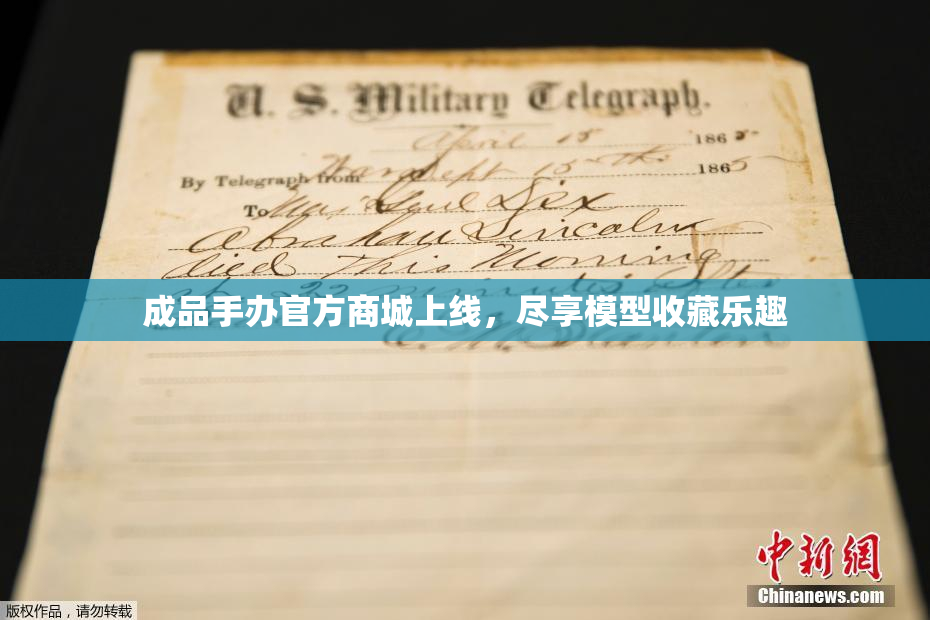 U. S. Military Telegraph.
April 15 1865
By Telegraph from War Dept 15th 1865
To Maj Genl Dix
Abraham Lincoln
died This Morning
at 22 minutes after
成品手办官方商城上线，尽享模型收藏乐趣
E. M. Stanton
中新網
Chinanews.com
版权作品，请勿转载